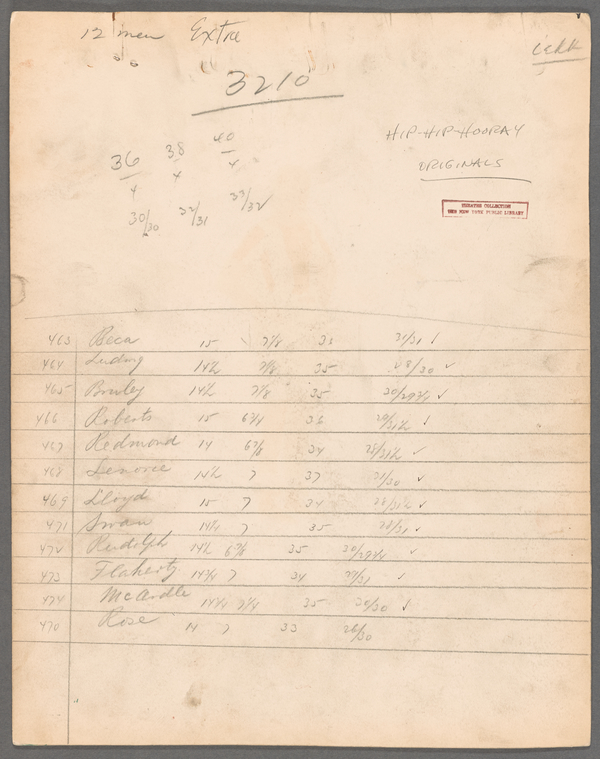 12 men Extra
3210
HIP-HIP-HOORAY
ORIGINALS
THEATRE COLLECTION
THE NEW YORK PUBLIC LIBRARY
36 38 40
4 4 4
30/30 32/31 33/32
463 Beca 15 7 1/8 36 31/31 ✓
464 Ludwig 14 1/2 7 1/8 35 28/30 ✓
465 14 1/2 7 1/8 35 30/29 1/2 ✓
466 Roberts 15 6 3/4 36 29/31 1/2 ✓
467 Redmond 14 6 7/8 34 28/31 1/2 ✓
468 Lenorie 14 1/2 7 37 31/30 ✓
469 Lloyd 15 7 34 28/31 1/2 ✓
471 Swan 14 1/4 7 35 28/31 ✓
472 Rudolph 14 1/2 6 7/8 35 30/29 1/2 ✓
473 Flaherty 14 3/4 7 34 29/31 ✓
474 McArdle 14 1/4 7 1/4 35 30/30 ✓
470 Rose 14 7 33 26/30